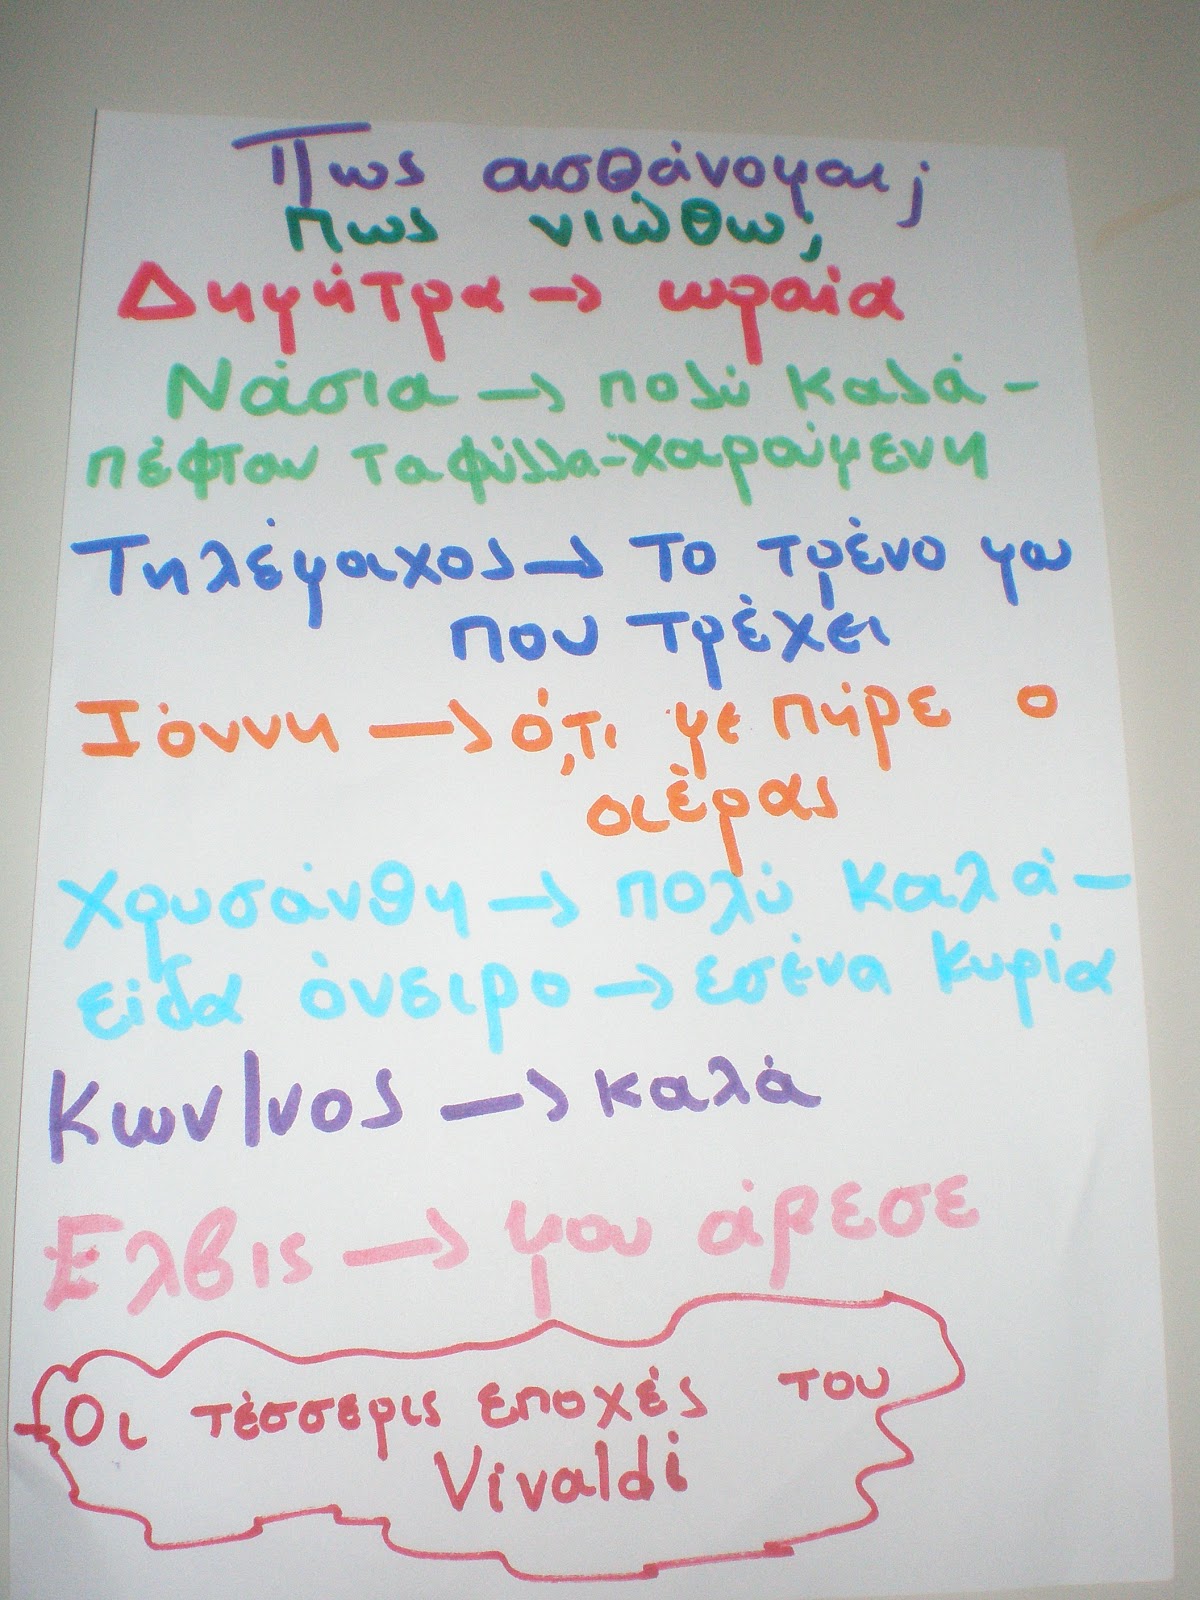 Πως αισθάνομαι;
Πως νιώθω;
Δημήτρα → ωραία
Νάσια → πολύ καλά -
πέφτουν τα φύλλα - χαρούμενη
Τηλέμαχος → το τρένο μου
που τρέχει
Ιόννη → ό,τι με πήρε ο
αέρας
Χρυσάνθη → πολύ καλά -
είδα όνειρο → εσένα κυρία
Κων/νος → καλά
Ελβις → μου άρεσε
Οι τέσσερις εποχές του
Vivaldi